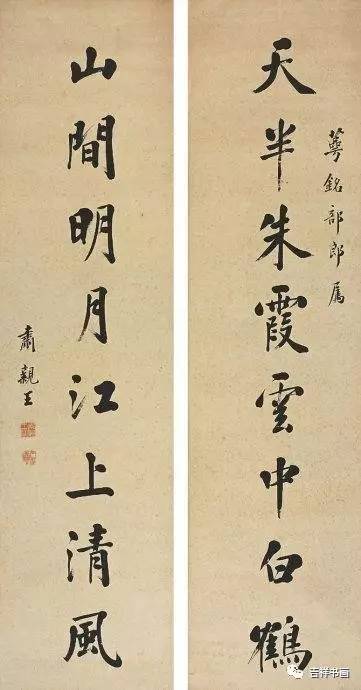 天半朱霞雲中白鶴
蕚銘部郎属
山間明月江上清風
肅親王
吉祥书画